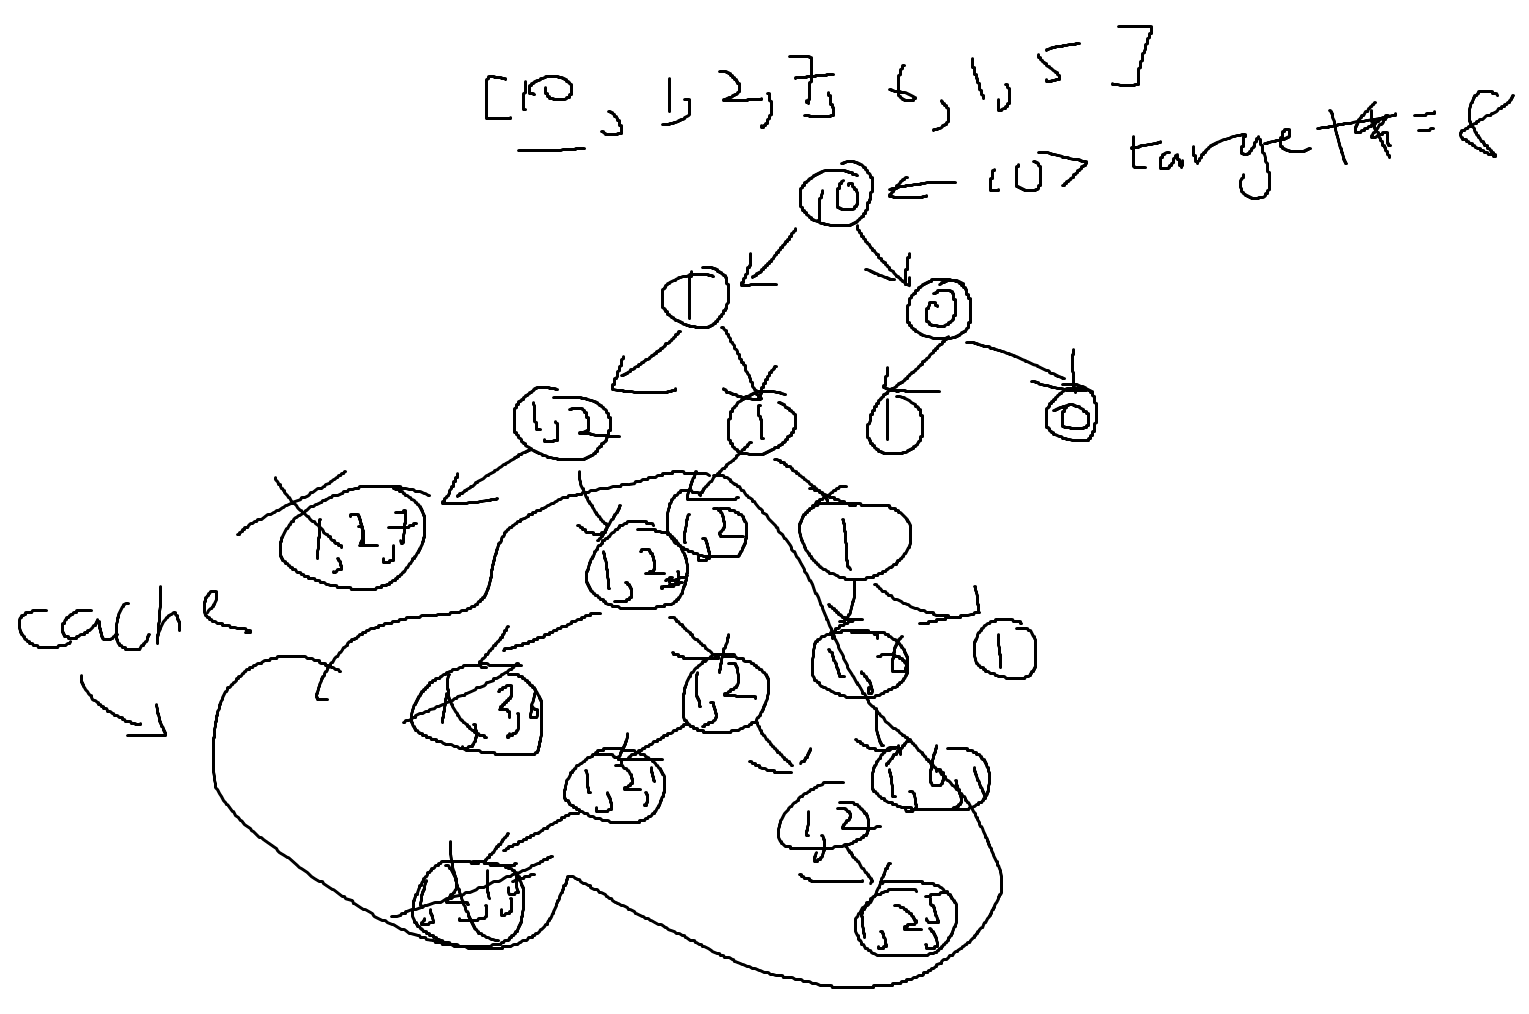 [10, 1, 2, 7, 6, 1, 5]
10 ← 10> target = 8
1 0
1,2 1 1 0
1,2,7 1,2 1,2 1
cache 1,6 1
1,2
1,2,1 1,6,1
1,2
1,2,5